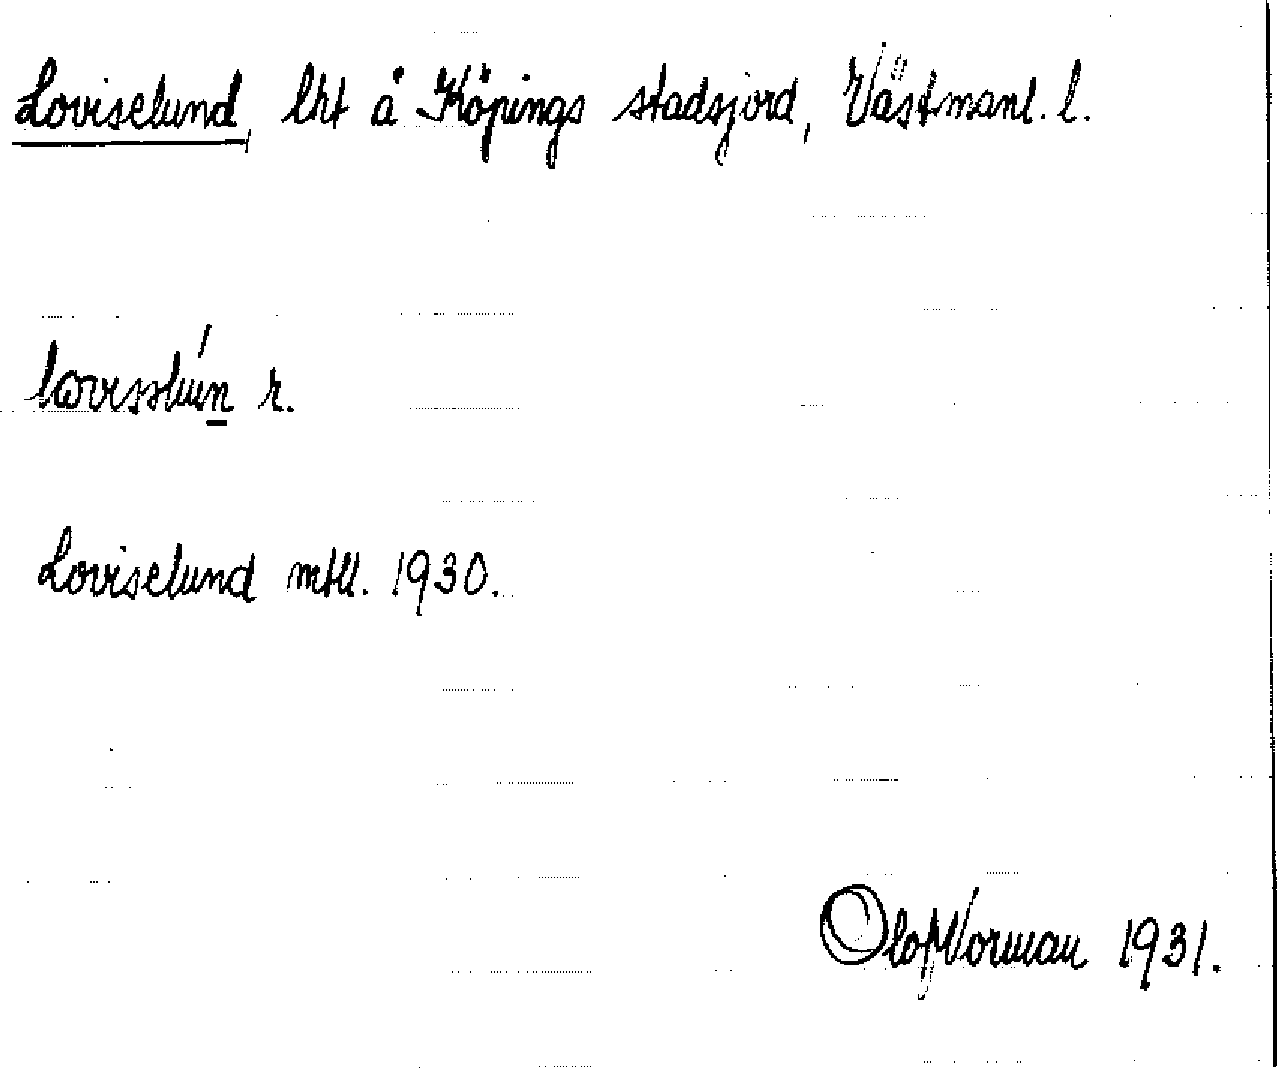 Loviselund, lht å Köpings stadsjord, Västmanl. l.
r.
Loviselund mtll. 1930.
Olof Norman 1931.